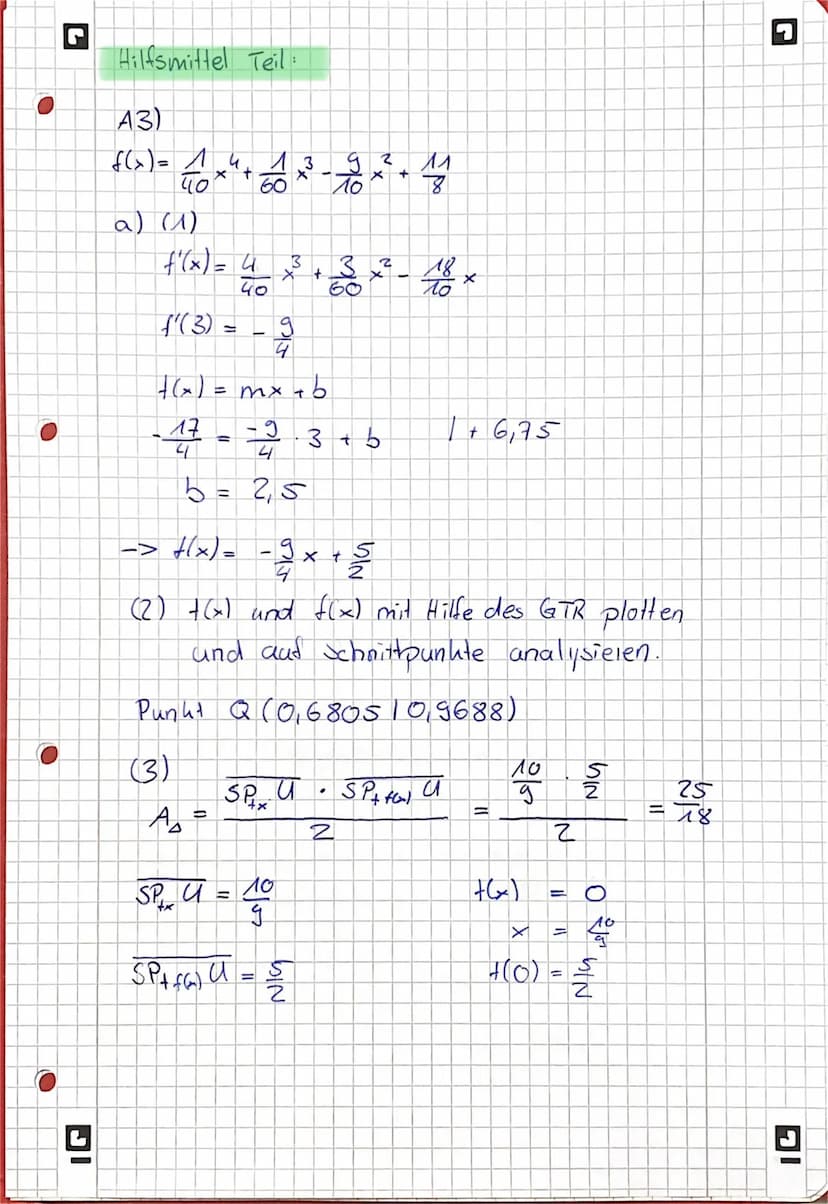 Hilfsmittel Teil:
A3)
f(x) = 1/40 x^4 + 1/60 x^3 - 9/10 x^2 + 11/8
a) (1)
f'(x) = 4/40 x^3 + 3/60 x^2 - 18/10 x
f'(3) = - 9/4
t(x) = mx + b
- 17/4 = -9/4 · 3 + b | + 6,75
b = 2,5
-> t(x) = - 9/4 x + 5/2
(2) t(x) und f(x) mit Hilfe des GTR plotten
und auf Schnittpunkte analysieren.
Punkt Q (0,6805 | 0,9688)
(3)
A△ = (SP_tx U · SP_t f(x) U) / 2 = (10/9 · 5/2) / 2 = 25/18
SP_tx U = 10/9 t(x) = 0
x = 10/9
SP_t f(x) U = 5/2 t(0) = 5/2